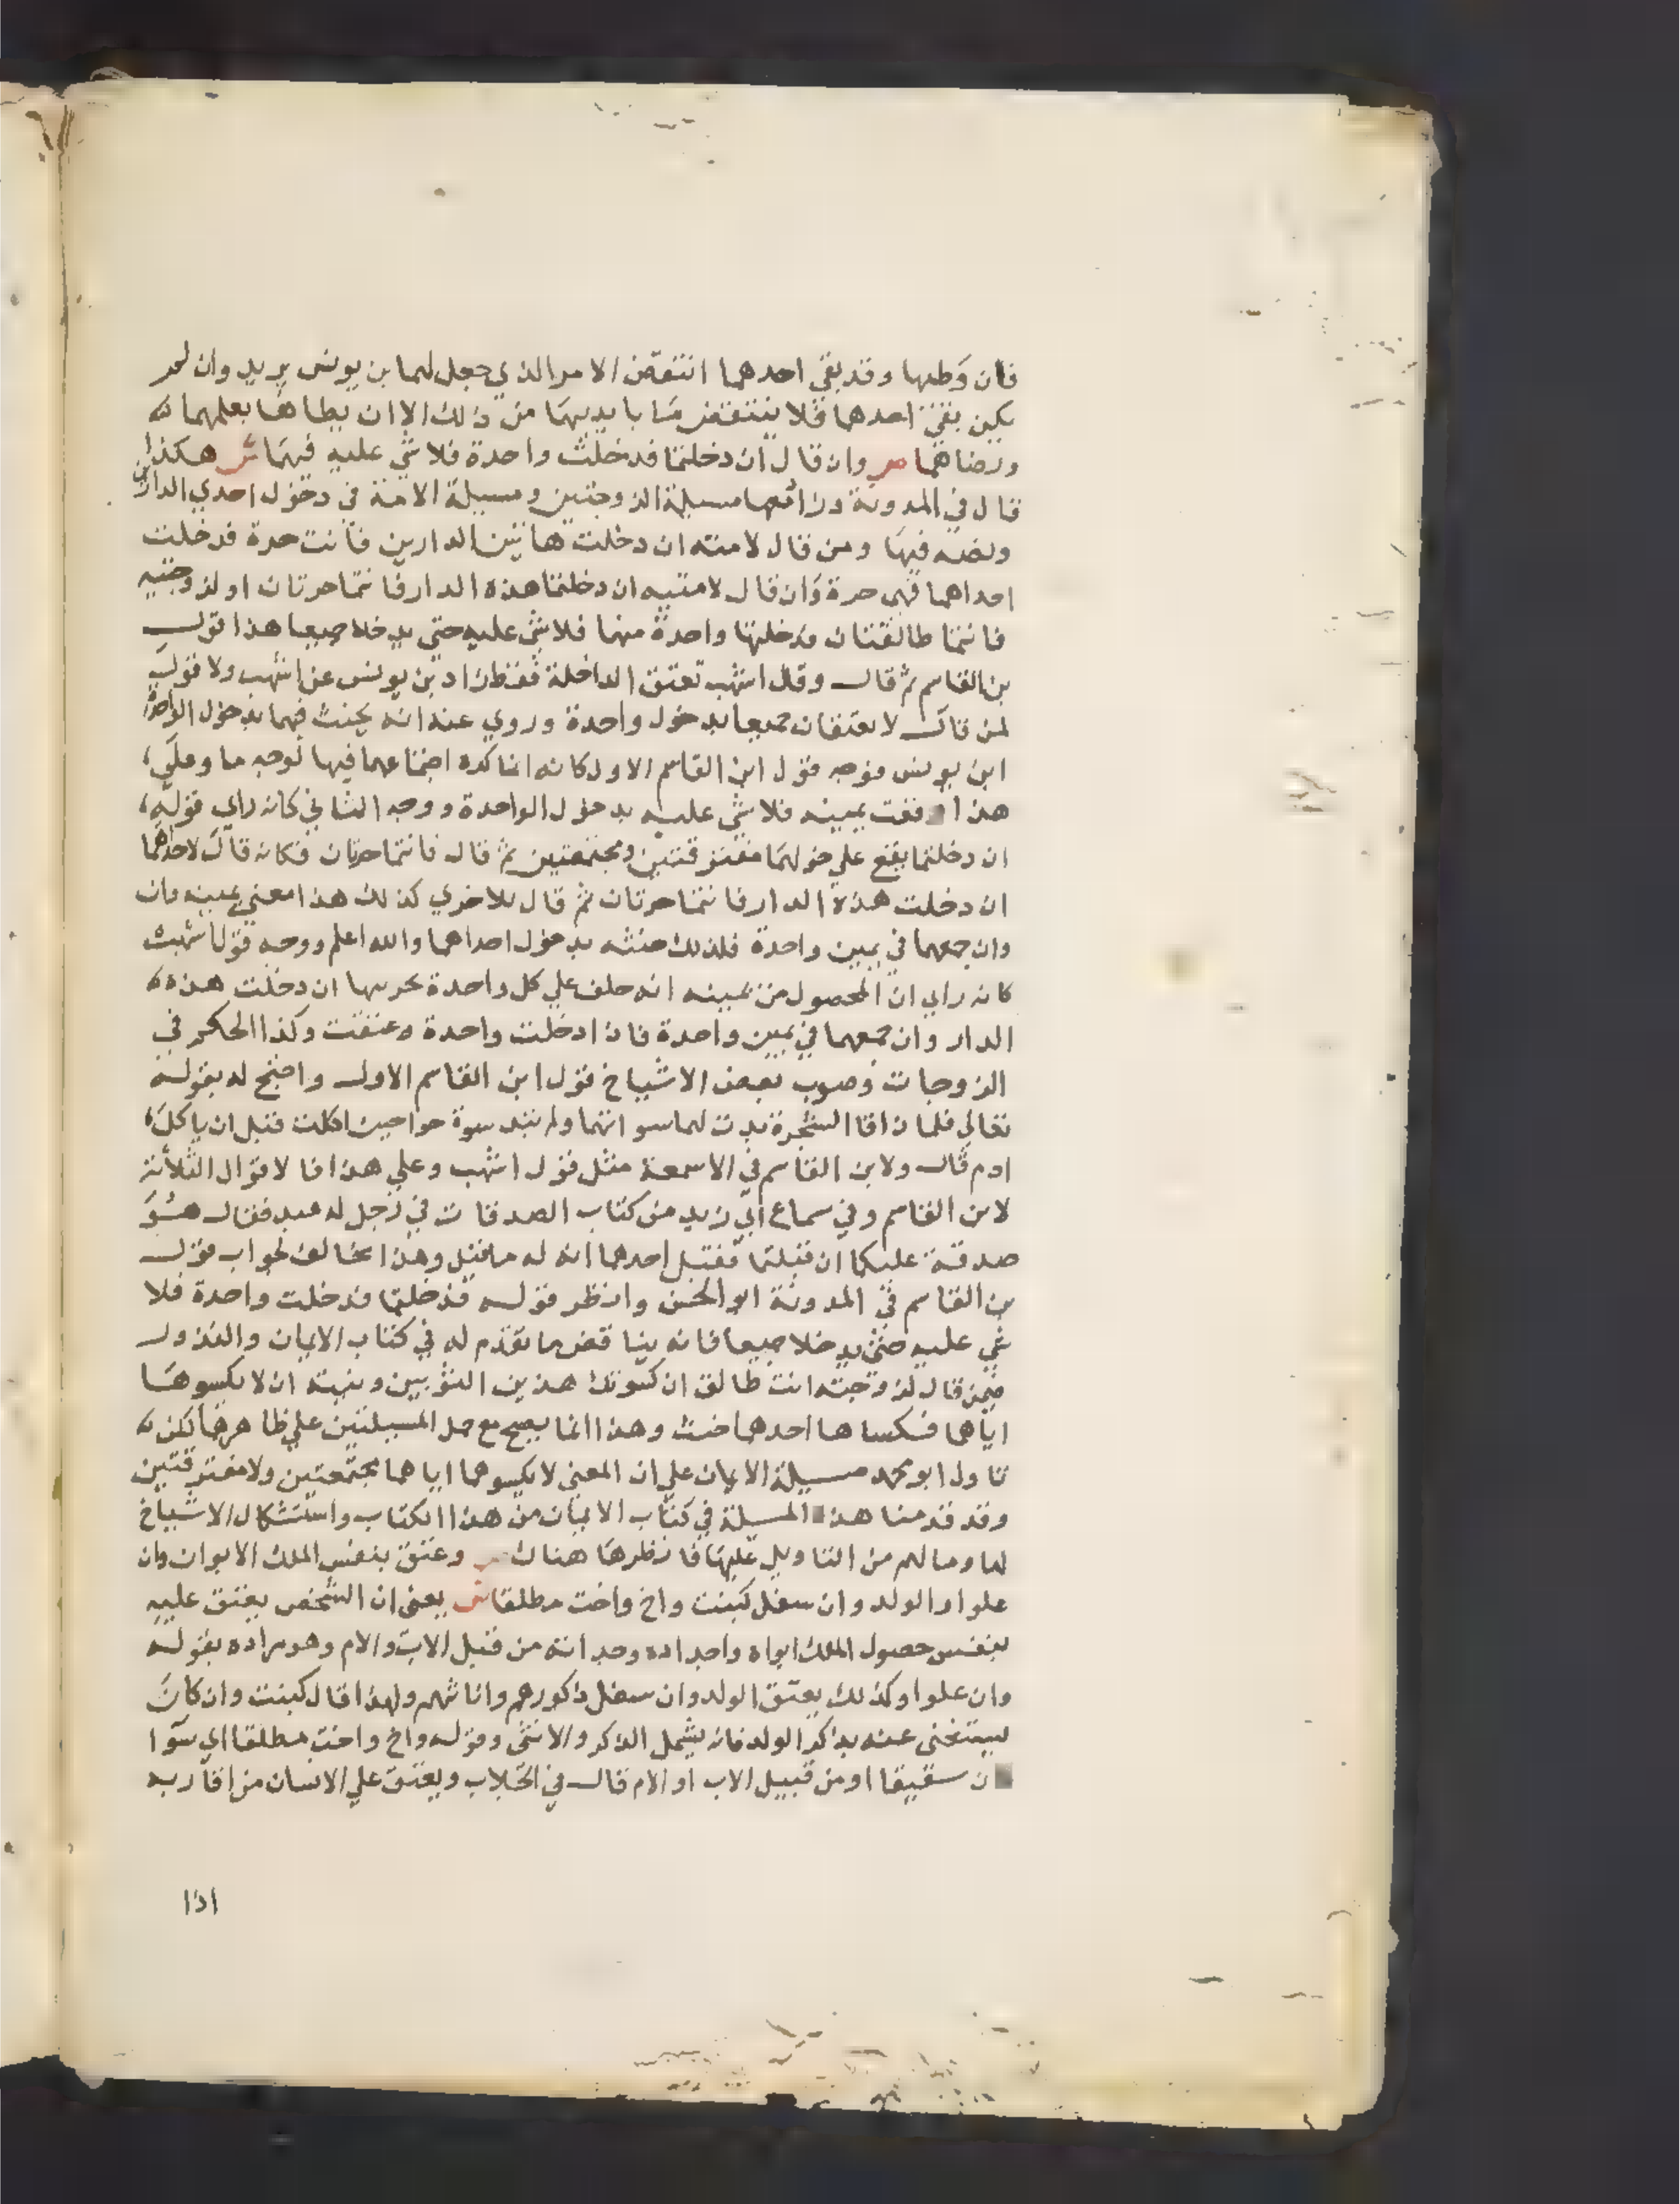 فان وطها وقد بقي احدهما انتقض الامر الذي جعل لهما بن يونس يريد وان لم
يكن بقي احدهما فلا ينتقض ما بايديهما من ذلك الا ان يطاها بعلمهما
ورضاهما ص وان قال ان دخلتما فدخلت واحدة فلا شي عليه فيهما ش هكذا
قال في المدونة وزاد معها مسيلة الزوجتين ومسيلة الامة في دخول احدي الدارين
ونصه فيها ومن قال لامته ان دخلت هاتين الدارين فانت حرة فدخلت
احداهما فهي حرة وان قال لامتيه ان دخلتما هذه الدار فانتما حرتان او لزوجتيه
فانتما طالقتان فدخلتها واحدة منهما فلا شي عليه حتي يدخلا جميعا هذا قول
بن القاسم ثم قال وقال اشهب تعتق الداخلة فقط زاد بن يونس عن اشهب ولا قول
لمن قال لا يعتقان جميعا بدخول واحدة وروي عنه انه يحنث فيهما بدخول الواحدة
ابن يونس فوجه قول ابن القاسم الاول كانه انما كره اجتماعهما فيها لوجه ما وعلي
هذا وقفت يمينه فلا شي عليه بدخول الواحدة ووجه الثاني كانه راي قوله
ان دخلتما يقع علي دخولهما مفترقتين ومجتمعتين ثم قال فانتما حرتان فكانه قال لاحداهما
ان دخلت هذه الدار فانتما حرتان ثم قال للاخري كذلك هذا معني يمينه وان
وان جمعهما في يمين واحدة فلذلك حنثه بدخول احداهما والله اعلم ووجه قول اشهب
كانه راي ان المحصول من يمينه انه حلف علي كل واحدة بحريتها ان دخلت هذه
الدار وان جمعهما في يمين واحدة فاذا دخلت واحدة عتقت وكذا الحكم في
الزوجات وصوب بعض الاشياخ قول ابن القاسم الاول واحتج له بقوله
تعالي فلما ذاقا الشجرة بدت لهما سواتهما ولم تبد سوة حوا حين اكلت قبل ان ياكل
ادم قال ولابن القاسم في الاسمعة مثل قول اشهب وعلي هذا فالاقوال الثلاثة
لابن القاسم وفي سماع ابي زيد من كتاب الصدقات في رجل له عبد فقال هو
صدقة عليكما ان قبلتما فقبل احدهما انه له ما قبل وهذا مخالف لجواب قول
بن القاسم في المدونة ابو الحسن وانظر قوله فدخلتما فدخلت واحدة فلا
شي عليه حتي يدخلا جميعا فانه يناقض ما تقدم له في كتاب الايمان والنذور
فيمن قال لزوجته انت طالق ان كسوتك هذين الثوبين ونيته ان لا يكسوها
اياهما فكساها احدهما حنث وهذا انما يصح مع حمل المسيلتين علي ظاهرهما لكن
تاول ابو محمد مسيلة الايمان علي ان المعني لا يكسوهما اياهما مجتمعتين ولا مفترقتين
وقد قدمنا هذه المسيلة في كتاب الايمان من هذا الكتاب واستشكال الاشياخ
لها وما لهم من التاويل عليها فانظرها هناك ص وعتق بنفس الملك الابوان وان
علوا والولد وان سفل كبنت واخ واخت مطلقا ش يعني ان الشخص يعتق عليه
بنفس حصول الملك ابواه واجداده وجداته من قبل الاب والام وهو مراده بقوله
وان علوا وكذلك يعتق الولد وان سفل ذكورهم واناثهم ولهذا قال كبنت وان كان
يستغني عنه بذكر الولد فانه يشمل الذكر والانثي وقوله واخ واخت مطلقا اي سوا
كان شقيقا او من قبيل الاب او الام قال في الجلاب ويعتق علي الانسان من اقاربه
اذا